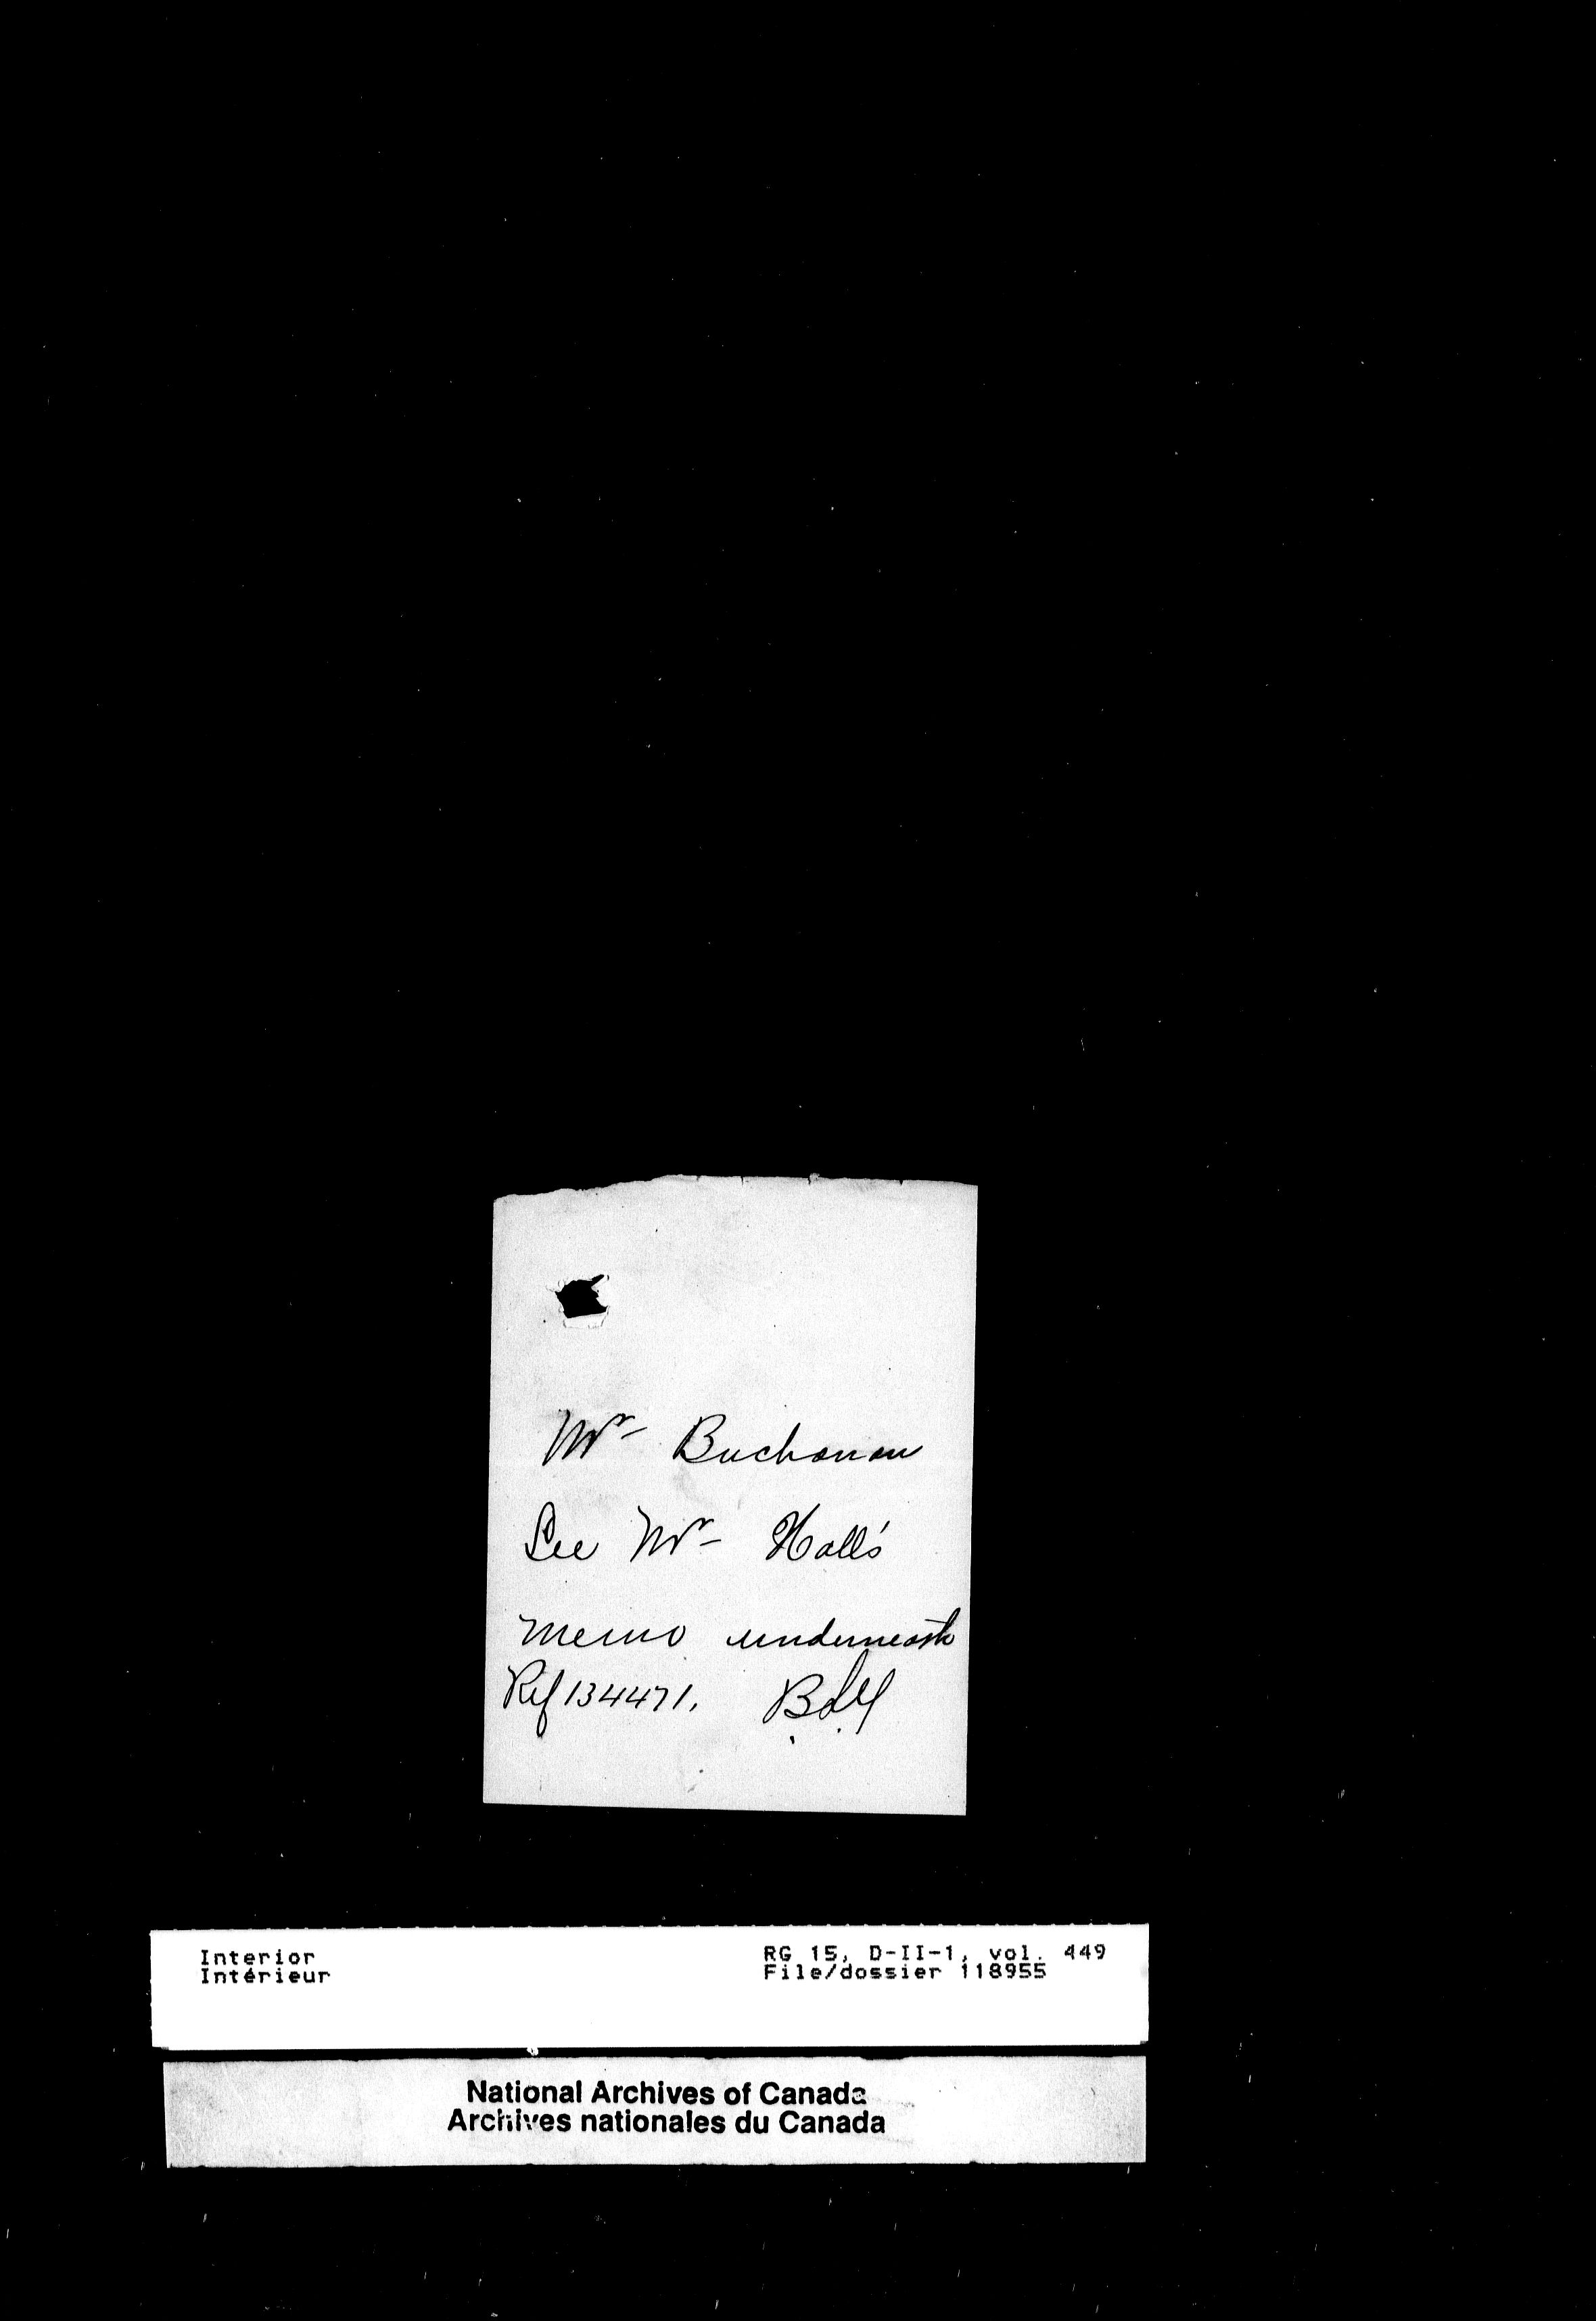 Mr Buchanan
See Mr Hall's
memo underneath
Ref 134471.
Interior
Intérieur
RG 15, D-II-1, vol. 449
File/dossier 118955
National Archives of Canada
Archives nationales du Canada